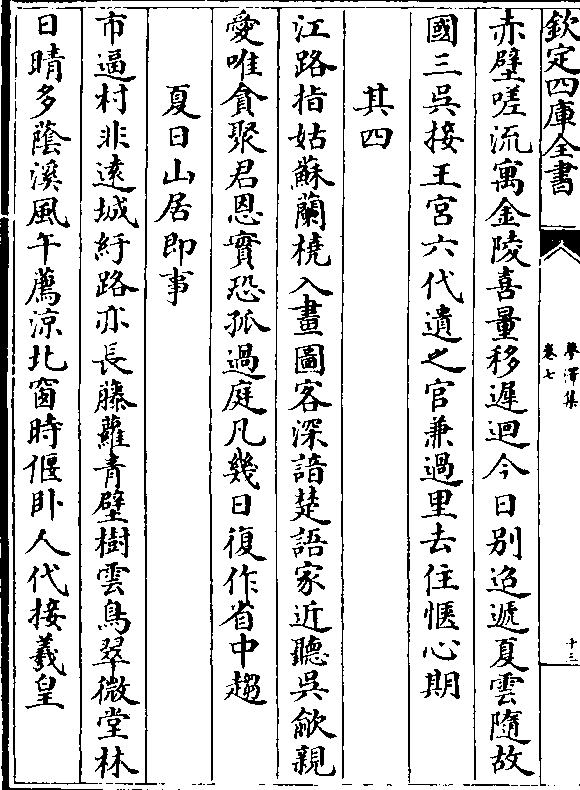 欽定四庫全書
夢澤集
卷七
十三
赤壁嗟流寓金陵喜量移遲迴今日别迢遞夏雲隨故
國三吳接王宮六代遺之官兼過里去住愜心期
其四
江路指姑蘇蘭橈入畫圖客深諳楚語家近聽吳歈親
愛唯貪聚君恩實恐孤過庭凡幾日復作省中趨
夏日山居即事
市逼村非逺城紆路亦長藤蘿青壁樹雲鳥翠微堂林
日晴多蔭溪風午薦凉北窗時偃卧人代接羲皇